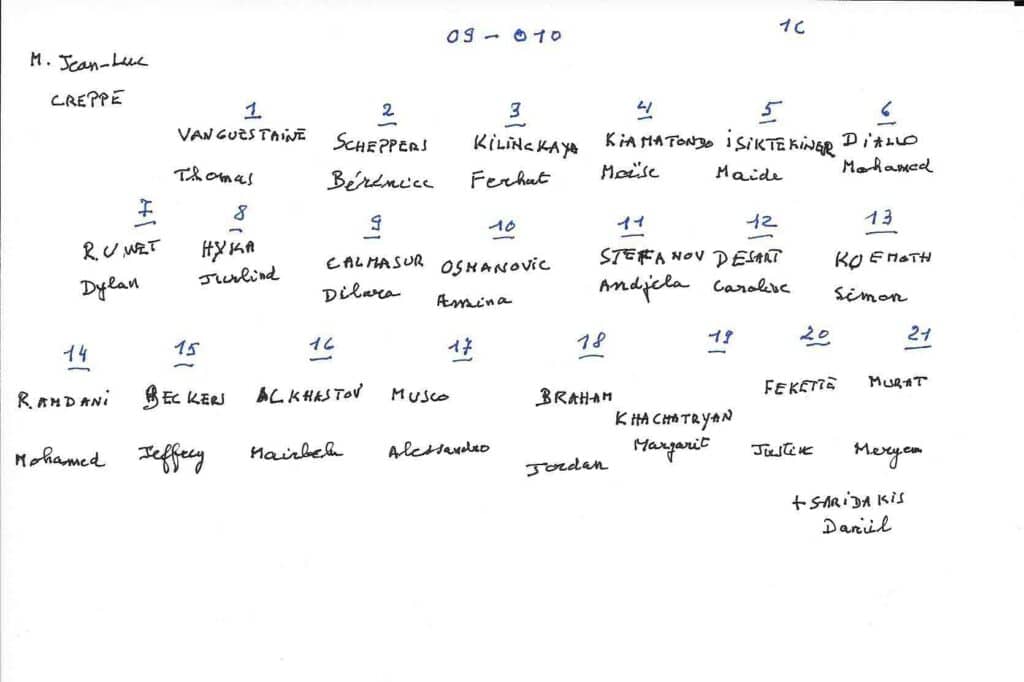 09 - 010
1C
M. Jean-Luc
CREPPE
1 2 3 4 5 6
VANGUESTAINE SCHEPPERS KİLİNCKAYA KIAMATONDO İSIKTEKINER DIALLO
Thomas Bérénice Ferhat Moïse Maide Mohamed
7 8 9 10 11 12 13
RUWET HYKA CALMASUR OSMANOVIC STEFFANOV DESART KOEMOTH
Dylan Dilara Amina Andjela Caroline Simon
14 15 16 17 18 19 20 21
RAMDANI BECKERS ALKHASTOV MUSCO BRAHAM KHACHATRYAN FEKETTE MURAT
Mohamed Jeffrey Alessandro Jordan Margarit Justine Meryem
+ SARIDAKIS
Daniil